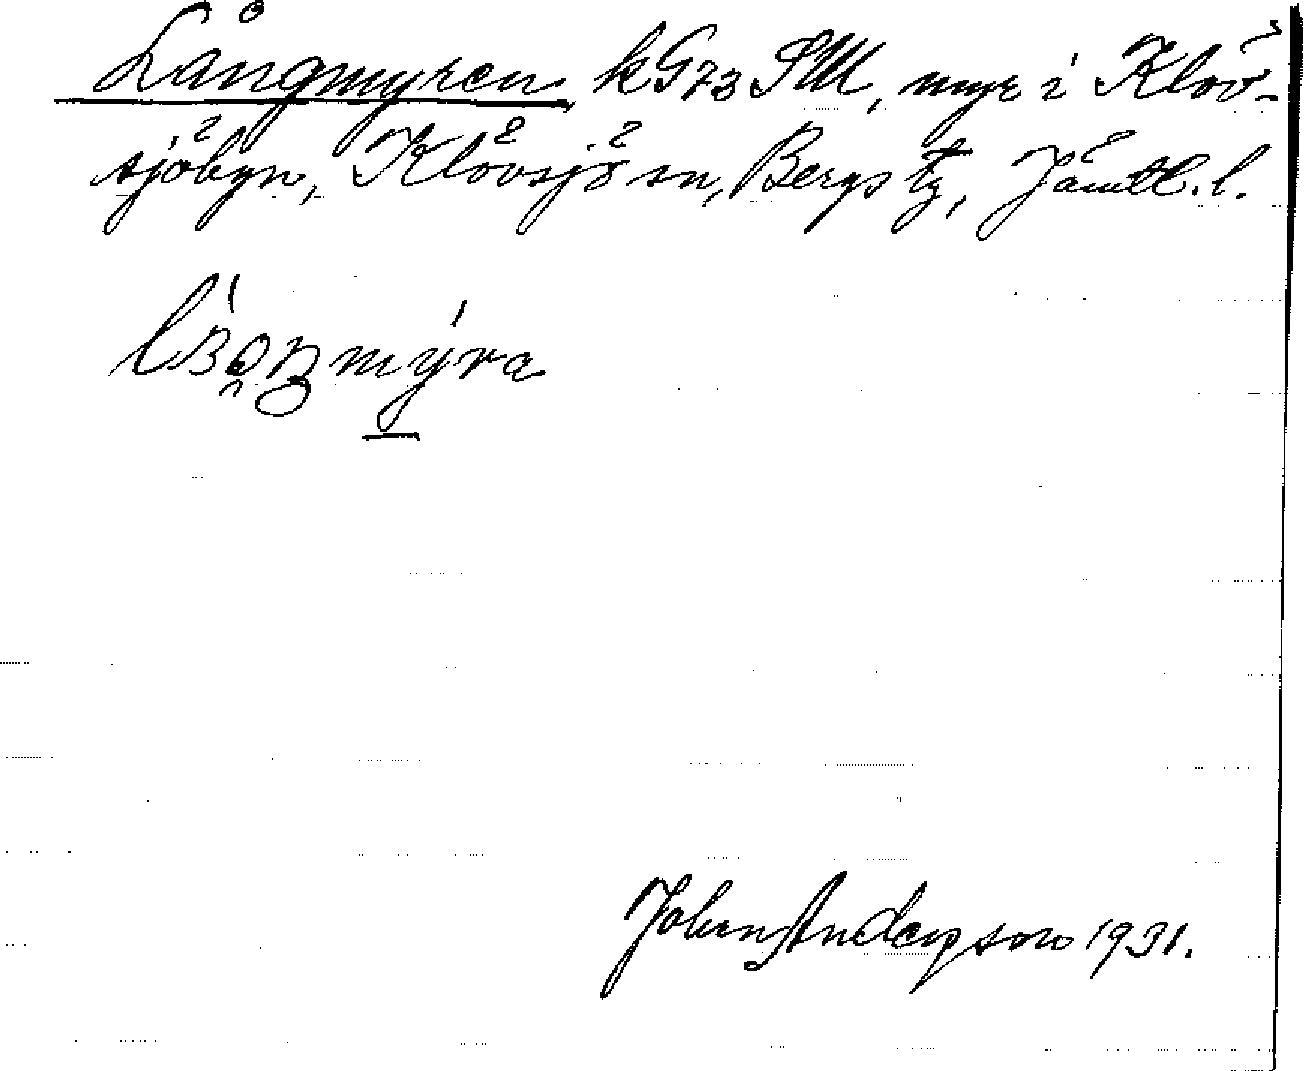 Långmyren kG73SM, myr i Klöv-
sjöbyn, Klövsjö sn, Bergs tg, Jämtl. l.
Johan Anderson 1931.